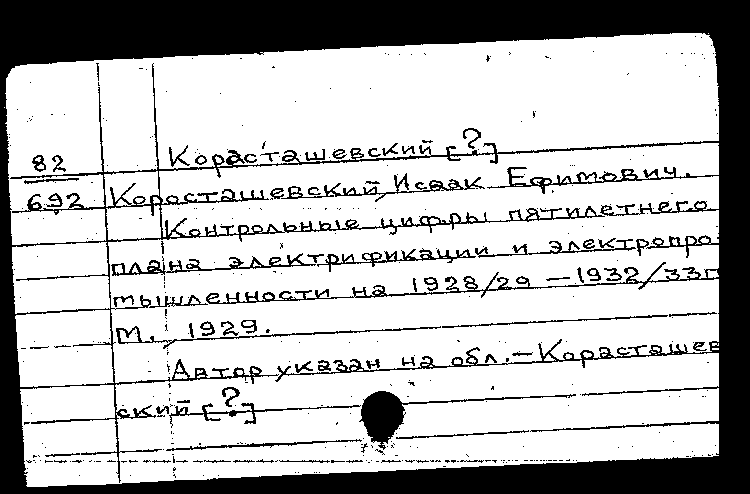 82
692
Корасташевский [?]
Коросташевский, Исаак Ефимович.
Контрольные цифры пятилетнего
плана электрификации и электропро-
мышленности на 1928/29 – 1932/33г
М., 1929.
Автор указан на обл. – Корасташев
ский [?]